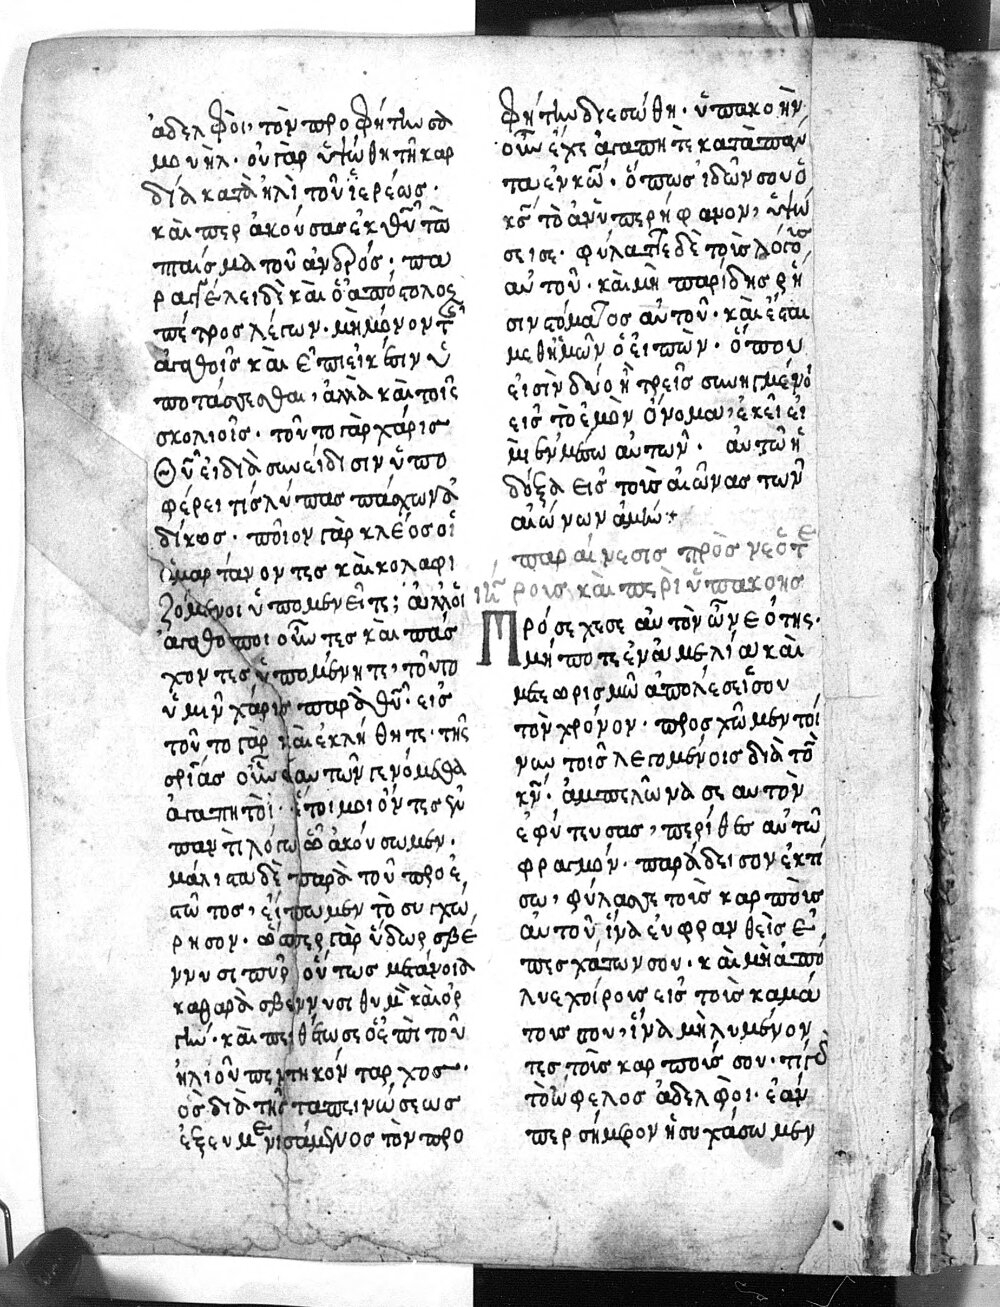 ἀδελφοὶ, τὸν προφήτην σα
μουὴλ· οὐ γὰρ ὑψώθη τῆ καρ
δία κατὰ ἡλὶ τοῦ ἱερέως·
καὶ περ ἀκούσας ἐκ θῦ τὸ
πταίσμα τοῦ ἀνδρός· πα
ραγγέλει δὲ καὶ ὁ ἀπόστολος
πέτρος λέγων· μὴ μόνον τοῖς
ἀγαθοῖς καὶ ἐπιεικέσιν ὑ
ποτάσσεσθαι, ἀλλὰ καὶ τοῖς
σκολιοῖς· τοῦτο γὰρ χάρις
θῦ εἰ διὰ συνείδισιν ὑπο
φέρει τίς λύπας πάσχων ἀ
δίκως· ποῖον γὰρ κλέος οἱ
ἁμαρτάνοντες καὶ κολαφι
ζόμενοι ὑπομενεῖτε; ἀλλ' οἱ
ἀγαθοποιοῦντες καὶ πάσ
χοντες ὑπομένητε, τοῦτο
ὑμῖν χάρις παρὰ θῦ· εἰς
τοῦτο γὰρ καὶ ἐκλήθητε· τῆς
σριᾶς οὖν ἑαυτῶν γενόμεθα
ἀγαπητοὶ· ἕτοιμοι ὄντες ἐν
παντὶ λόγω ὧ ἀκούσωμεν·
μάλιστα δὲ παρὰ τοῦ προε
στῶτος, εἴπωμεν τὸ συγχώ
ρησον· ὥσπερ γὰρ ὕδωρ σβέ
ννυσι πῦρ οὕτως μετάνοια
καθαρὰ σβέννυσι θυμὸν καὶ ὀρ
γήν· καὶ πειθέτωσε ὁ ἐπὶ τοῦ
ἠλιοῦ πεντηκόνταρχος·
ὃς διὰ τῆς ταπεινώσεως
ἐξευμενισάμενος τὸν προ
φήτην διεσώθη· ὑπακοὴν
οὖν ἔχε ἀγαπητὲ κατὰ πάν
τα ἐν κῶ· ὅπως ἰδών σου ὁ
κς τὸ ἀνυπερήφανον, ὑψώ
σει σε· φύλαττε δὲ τοὺς λόγους
αὐτοῦ· καὶ μὴ παρίδης ρῆ
σιν στόματος αὐτοῦ· καὶ ἔσται
μεθ' ἡμῶν ὁ εἰπών· ὅπου
εἰσὶν δύο ἢ τρεῖς συνηγμένοι
εἰς τὸ ἐμὸν ὄνομα, ἐκεῖ εἰ
μὶ ἐν μέσω αὐτῶν· αὐτῶ ἡ
δόξα εἰς τοὺς αἰῶνας τῶν
αἰώνων ἀμήν+
παραίνεσις πρὸς νεωτέ
ρους καὶ περὶ ὑπακοῆς
Πρόσεχε σεαυτὸν ὦ νεότης·
μήποτε ἐν ἀμελία καὶ
μετεωρισμῶ ἀπολέσεις σου
τὸν χρόνον· προσχῶμεν τοί
νυν τοῖς λεγομένοις διὰ τὸν
κν· ἀμπελῶνα σεαυτὸν
ἐφύτευσας, περίθες αὐτῶ
φραγμόν· παράδεισον ἐκτί
σω, φύλασσε τοὺς καρποὺς
αὐτοῦ ἵνα εὐφρανθεὶς ἐ
π' ἐσχάτων σου· καὶ μὴ ἀπο
λύε χοίρους εἰς τοὺς καμά
τους σου, ἵνα μὴ λυμένον
τες τοὺς καρποὺς σου· τί γὰρ
τὸ ὤφελος ἀδελφοὶ· ἐάν
περ σήμερον ἡσυχάσωμεν